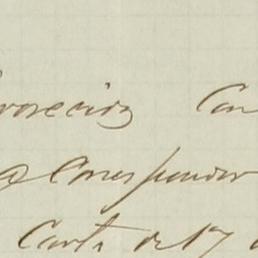 vorecida Con
a Corresponder
Carta de 17 d